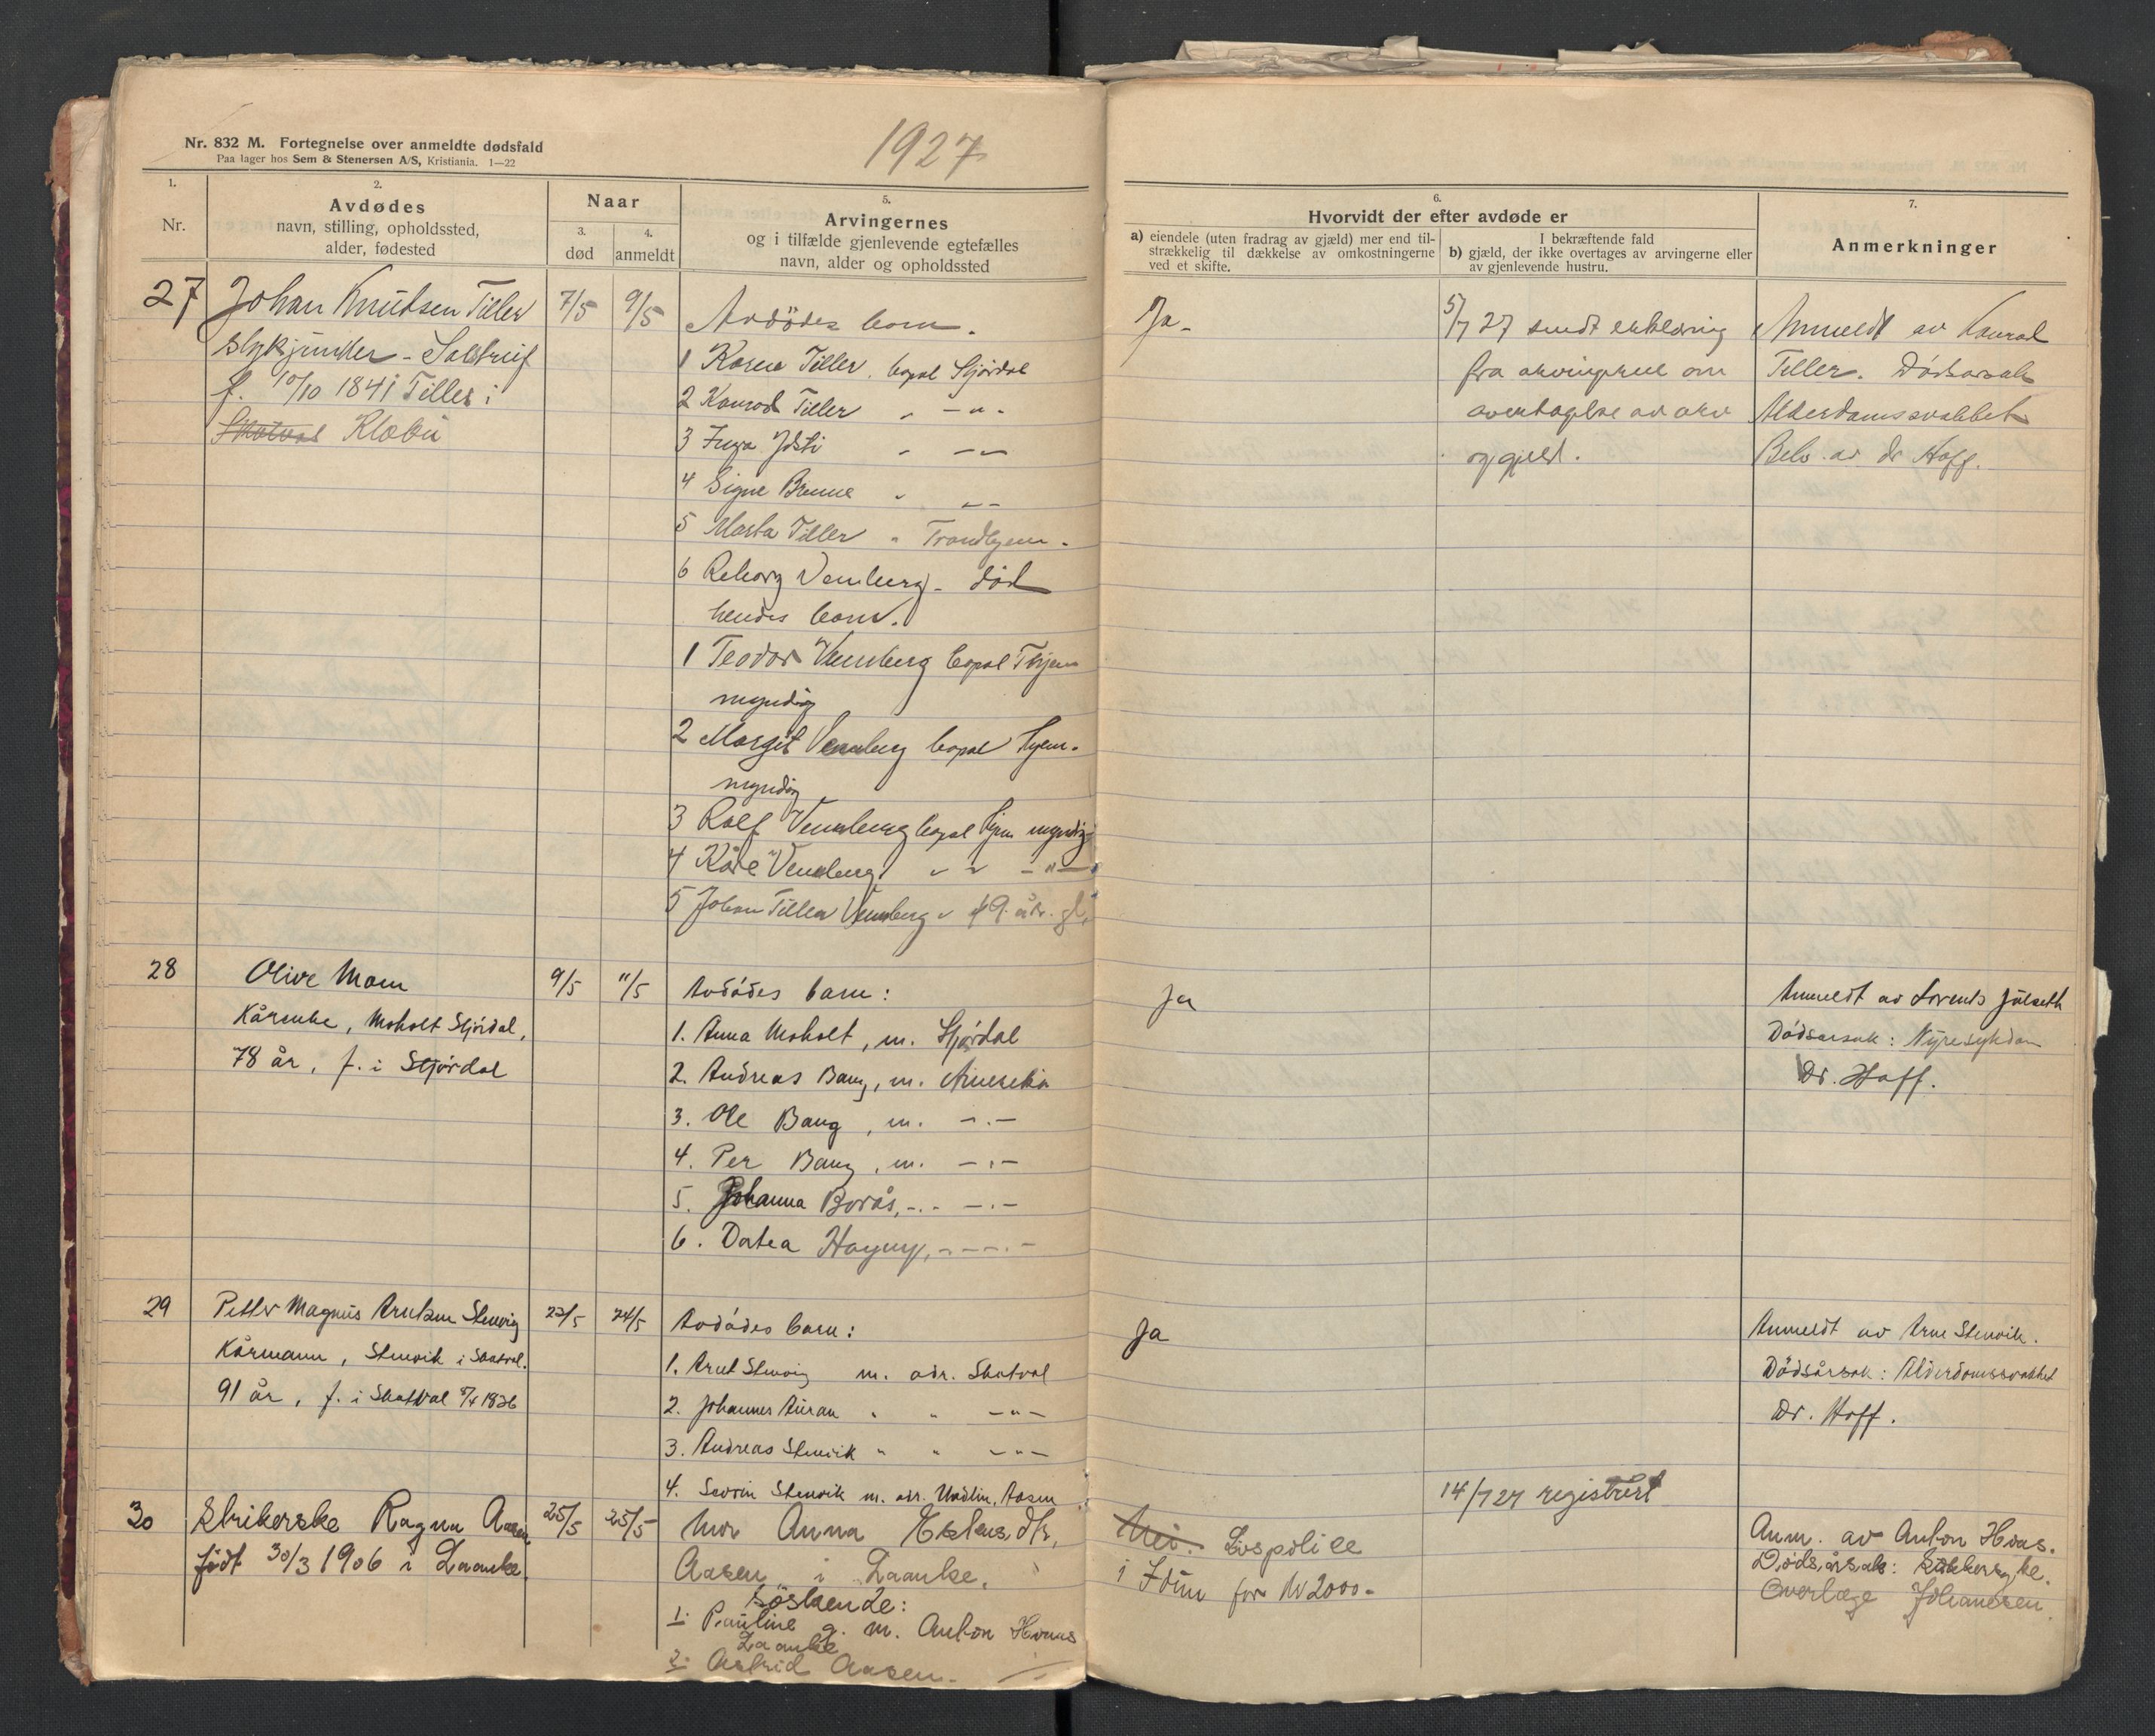 Nr. 832 M. Fortegnelse over anmeldte dødsfald
Paa lager hos Sem & Stenersen A/S, Kristiania. 1—22
1927
1.
Nr.
2.
Avdødes
navn, stilling, opholdssted,
alder, fødested
Naar
3.
død
4.
anmeldt
5.
Arvingernes
og i tilfælde gjenlevende egtefælles
navn, alder og opholdssted
6.
Hvorvidt der efter avdøde er
a) eiendele (uten fradrag av gjæld) mer end til-
strækkelig til dækkelse av omkostningerne
ved et skifte.
I bekræftende fald
b) gjæld, der ikke overtages av arvingerne eller
av gjenlevende hustru.
7.
Anmerkninger
27 Johan Knutsen Tiller 7/5 9/5
f. 10/10 1841 Tiller i
Skatval Klæbu
Avdødes barn.
1 Karen Tiller. bopæl Stjørdal
2 Konrad Tiller " - " -
3 Inga
4 Signe Brenne
5 Marta Tiller " Trondhjem.
6 Reborg Vennberg - død
hendes barn.
1 Teodor Vennberg bopæl Thjem
myndig
2 Margit Vennberg bopæl Thjem.
myndig
3 Rolf Vennberg bopæl Thjem myndig
4 Kåre Vennberg " " - " -
5 Johan Tiller Vennberg " 19 år. gl.
Ja.
5/7 27 sendt erklæring
fra arvingene om
overtagelse av arv
og gjeld.
Anmeldt av Konrad
Tiller. Dødsarsak
Alderdomssvakhet
Beh. av dr Hoff.
28 Olive Moen 9/5 11/5
Kårenke, Moholt Stjørdal,
78 år, f. i Stjørdal
Avdødes barn:
1. Anna Moholt, m. Stjørdal
2. Andreas Bang, m. Amerika
3. Ole Bang, m. - . -
4. Per Bang, m. - . -
5. Johanna Borås, - . - - . -
6. Dortea
Ja
Anmeldt av Lorents Julseth
Dødsarsak: Nyresykdom
Dr. Hoff.
29 Petter Magnus Arntsen Stenvig 22/5 24/5
Kårmann, Stenvik i Skatval.
91 år, f. i Skatval 1836
Avdødes barn:
1. Arnt Stenvig m. adr. Skatval
2. Johannes Auran " " - " -
3. Andreas Stenvik " " - " -
4. Sevrin Stenvik m. adr. Aasen
Ja
14/7 27 registrert
Anmeldt av Arne Stenvik.
Dødsårsak: Alderdomssvakhet
Dr. Hoff.
30 Strikerske Ragna Aasen 25/5 25/5
født 30/3 1906 i Laanke.
Mor Anna
Aasen i Laanke.
Søskende:
1. Pauline g. m. Anton Hoaas
Laanke
2. Astrid Aasen.
Nei. Livspolice
i Idun for kr 2000-
Anm. av Anton Hoaas.
Dødsårsak: Sukkersyke.
Overlæge Johansen.